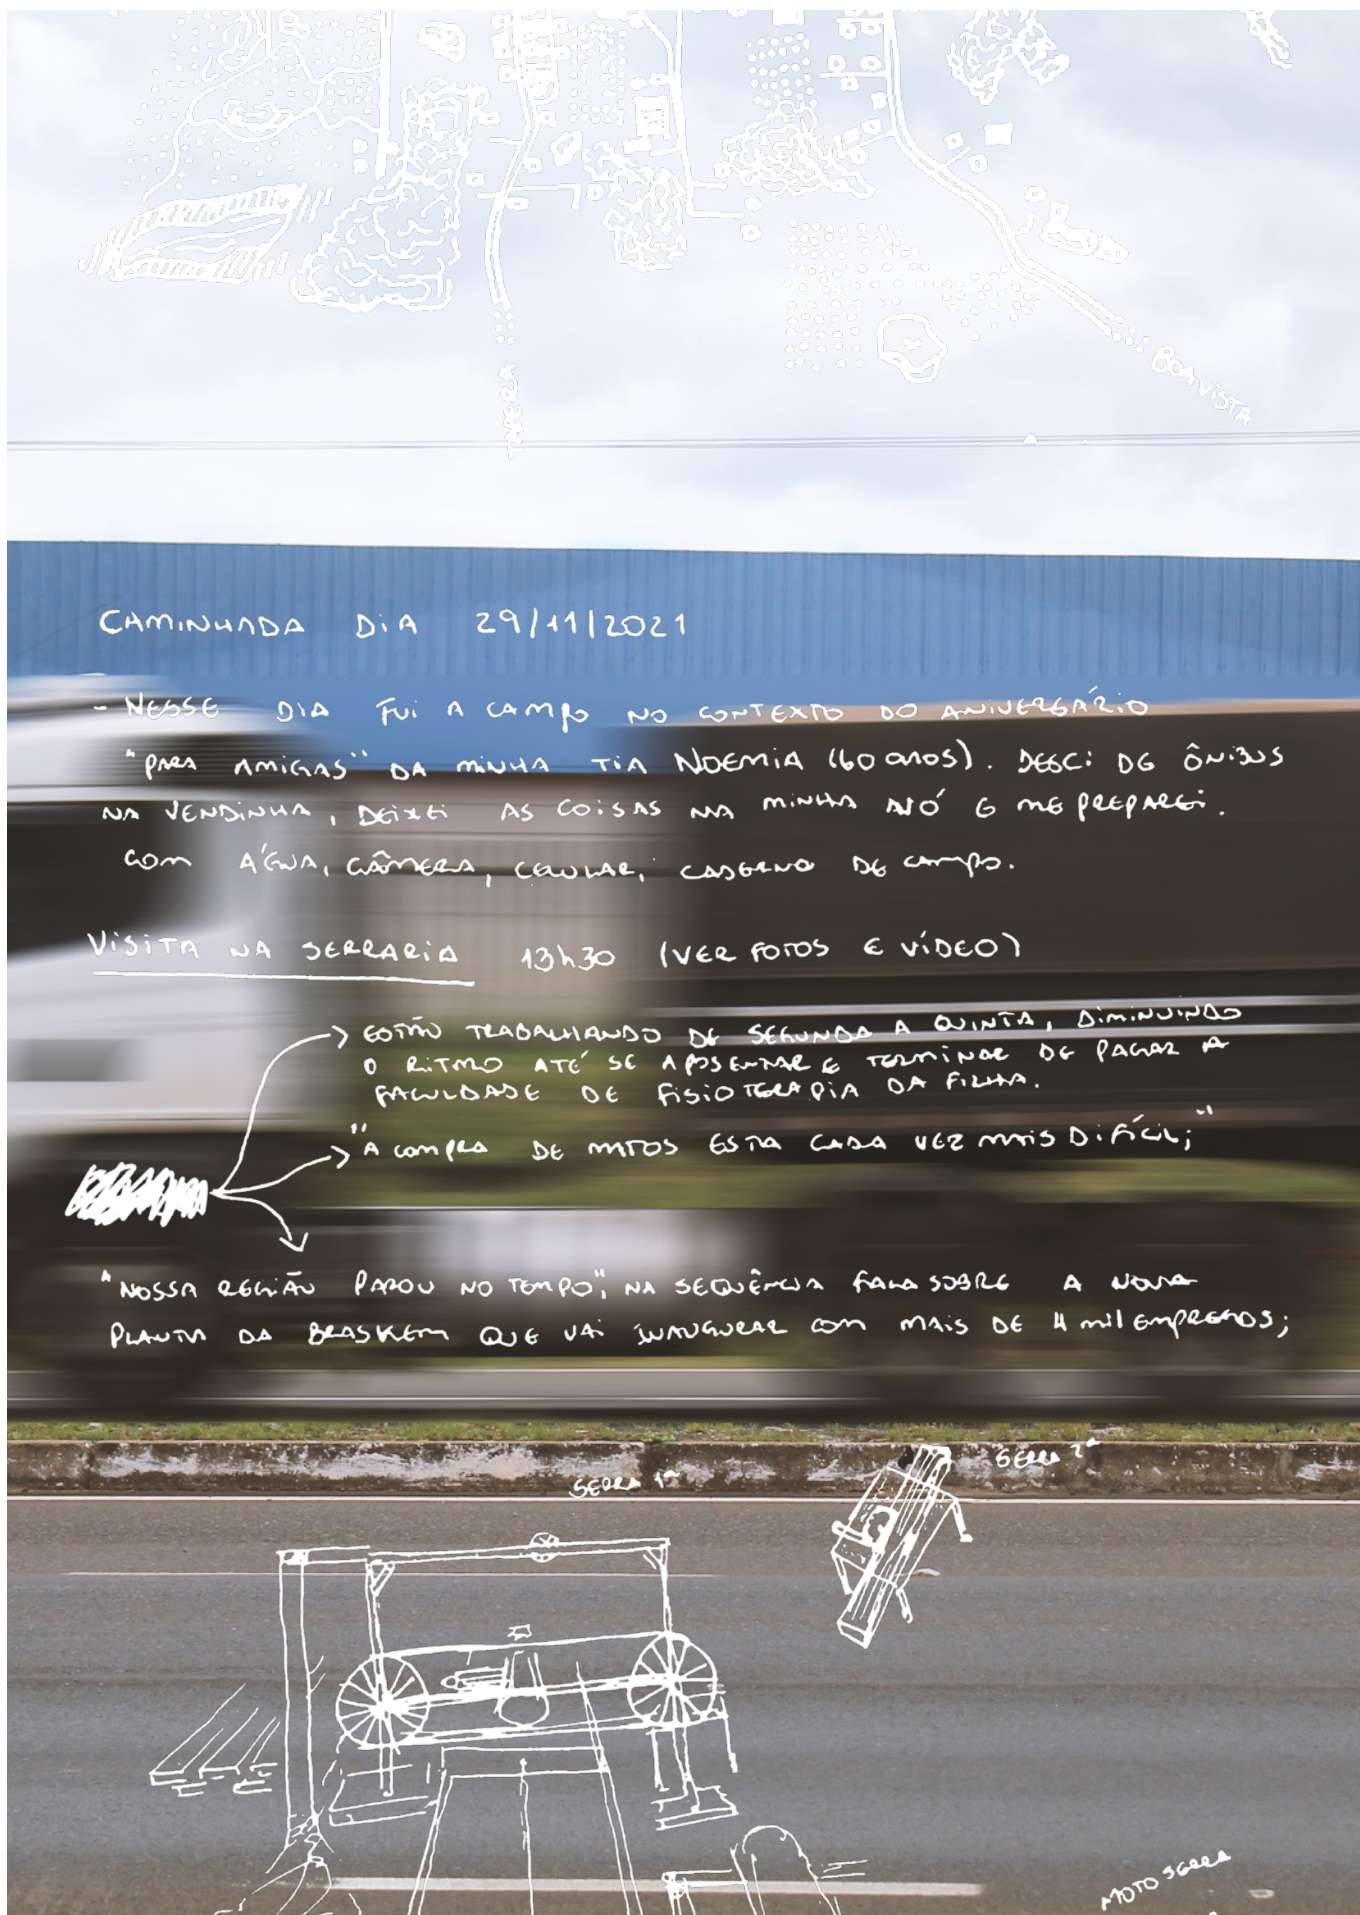 TAPERA
BOA VISTA
CAMINHADA DIA 29/11/2021
- NESSE DIA FUI A CAMPO NO CONTEXTO DO ANIVERSÁRIO
"PARA AMIGAS" DA MINHA TIA NOEMIA (60 anos). DESCI DE ÔNIBUS
NA VENDINHA, DEIXEI AS COISAS NA MINHA AVÓ E ME PREPAREI.
COM ÁGUA, CÂMERA, CELULAR, CADERNO DE CAMPO.
VISITA NA SERRARIA 13h30 (VER FOTOS E VÍDEO)
ESTÃO TRABALHANDO DE SEGUNDA A QUINTA, DIMINUINDO
O RITMO ATÉ SE APOSENTAR E TERMINAR DE PAGAR A
FACULDADE DE FISIOTERAPIA DA FILHA.
"A COMPRA DE MATOS ESTA CADA VEZ MAIS DIFÍCIL;"
"NOSSA REGIÃO PAROU NO TEMPO", NA SEQUÊNCIA FALA SOBRE A NOVA
PLANTA DA BRASKEM QUE VAI INAUGURAR COM MAIS DE 4 MIL EMPREGOS;
SERRA 1ª
SERRA 2ª
MOTO SERRA